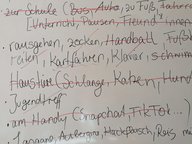 zur Schule (Bus, Auto, zu Fuß, Fahrrad
(Unterricht, Pausen, Freund
rausgehen, zocken, Handball, Fußb
reiten, Kartfahren, Klavier, schwimm
Haustiere (Schlange, Katzen, Hund
Jugendtreff
am Handy (Snapchat, TikTok...
Lasagne, Hackfleisch, Reis,